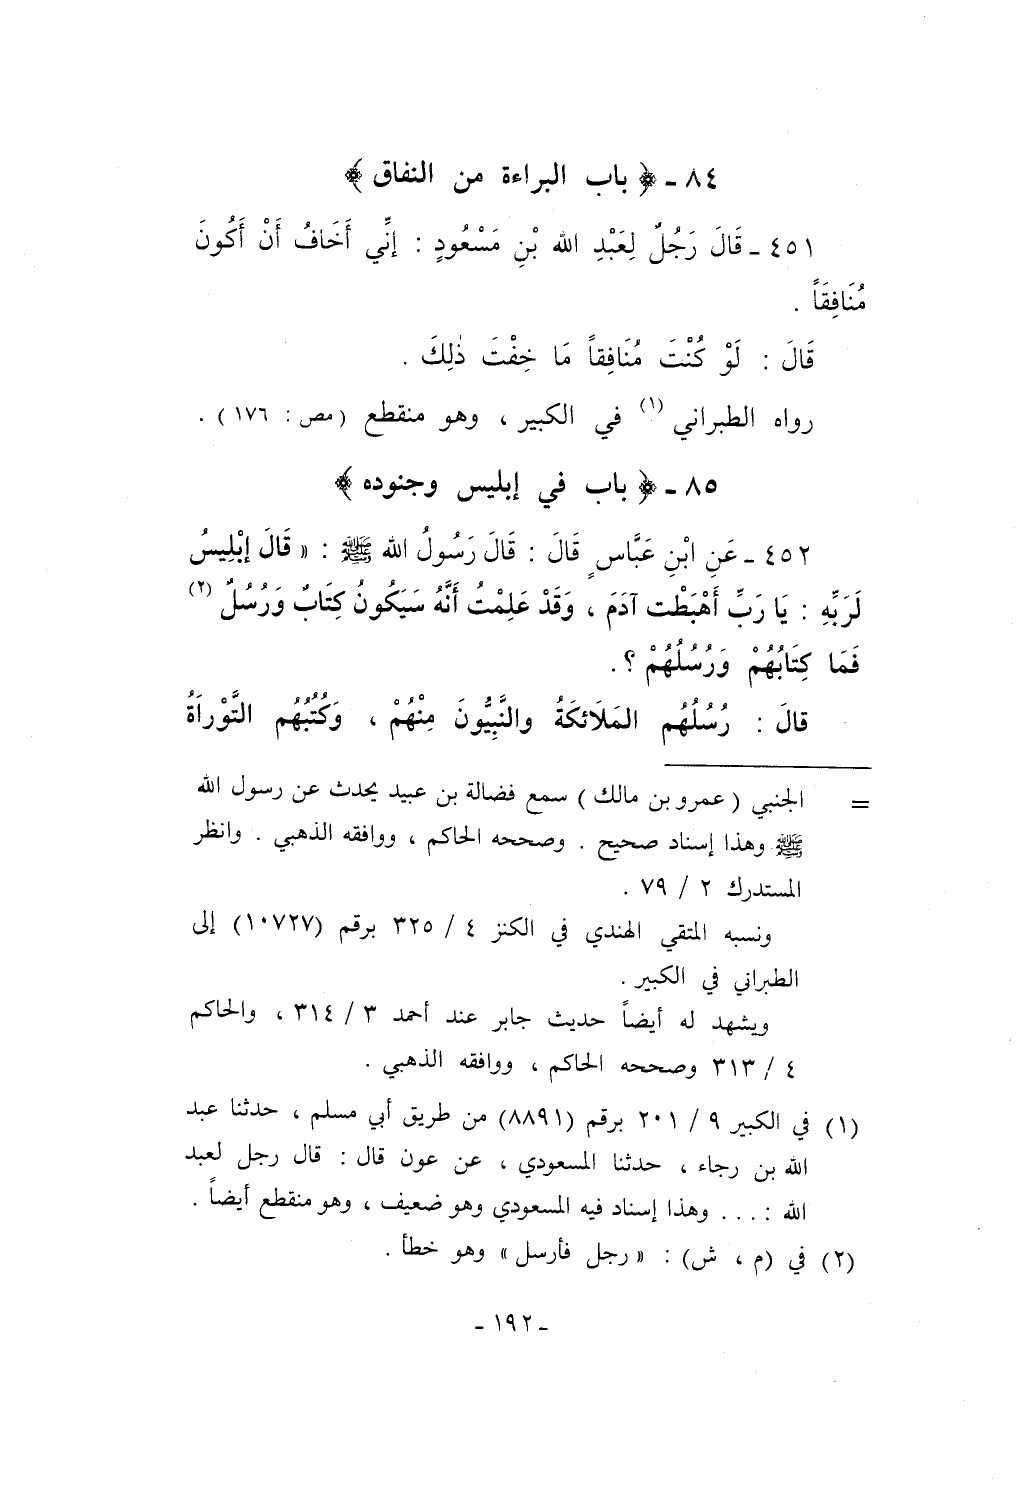 ٨٤ ـ ﴿ باب البراءة من النفاق ﴾
٤٥١ ـ قَالَ رَجُلٌ لِعَبْدِ الله بْنِ مَسْعُودٍ : إنِّي أَخَافُ أَنْ أَكُونَ
مُنَافِقَاً .
قَالَ : لَوْ كُنْتَ مُنَافِقاً مَا خِفْتَ ذٰلِكَ .
رواه الطبراني (١) في الكبير ، وهو منقطع ( مص : ١٧٦ ) .
٨٥ ـ ﴿ باب في إبليس وجنوده ﴾
٤٥٢ ـ عَنِ ابْنِ عَبَّاسٍ قَالَ : قَالَ رَسُولُ الله ﷺ : « قَالَ إبْلِيسُ
لَرَبِّهِ : يَا رَبِّ أَهْبَطْت آدَمَ ، وَقَدْ عَلِمْتُ أَنَّهُ سَيَكُونُ كِتَابٌ وَرُسُلٌ (٢)
فَمَا كِتَابُهُمْ وَرُسُلُهُمْ ؟ .
قالَ : رُسُلُهُم المَلَائكَةُ والنَّبِيُّونَ مِنْهُمْ ، وَكُتُبُهُم التَّوْراَةُ
= الجنبي ( عمرو بن مالك ) سمع فضالة بن عبيد يحدث عن رسول الله
ﷺ وهذا إسناد صحيح . وصححه الحاكم ، ووافقه الذهبي . وانظر
المستدرك ٢ / ٧٩ .
ونسبه المتقي الهندي في الكنز ٤ / ٣٢٥ برقم (١٠٧٢٧) إلى
الطبراني في الكبير .
ويشهد له أيضاً حديث جابر عند أحمد ٣ / ٣١٤ ، والحاكم
٤ / ٣١٣ وصححه الحاكم ، ووافقه الذهبي .
(١) في الكبير ٩ / ٢٠١ برقم (٨٨٩١) من طريق أبي مسلم ، حدثنا عبد
الله بن رجاء ، حدثنا المسعودي ، عن عون قال : قال رجل لعبد
الله : . . . وهذا إسناد فيه المسعودي وهو ضعيف ، وهو منقطع أيضاً .
(٢) في (م ، ش) : « رجل فأرسل » وهو خطأ .
ـ ١٩٢ ـ